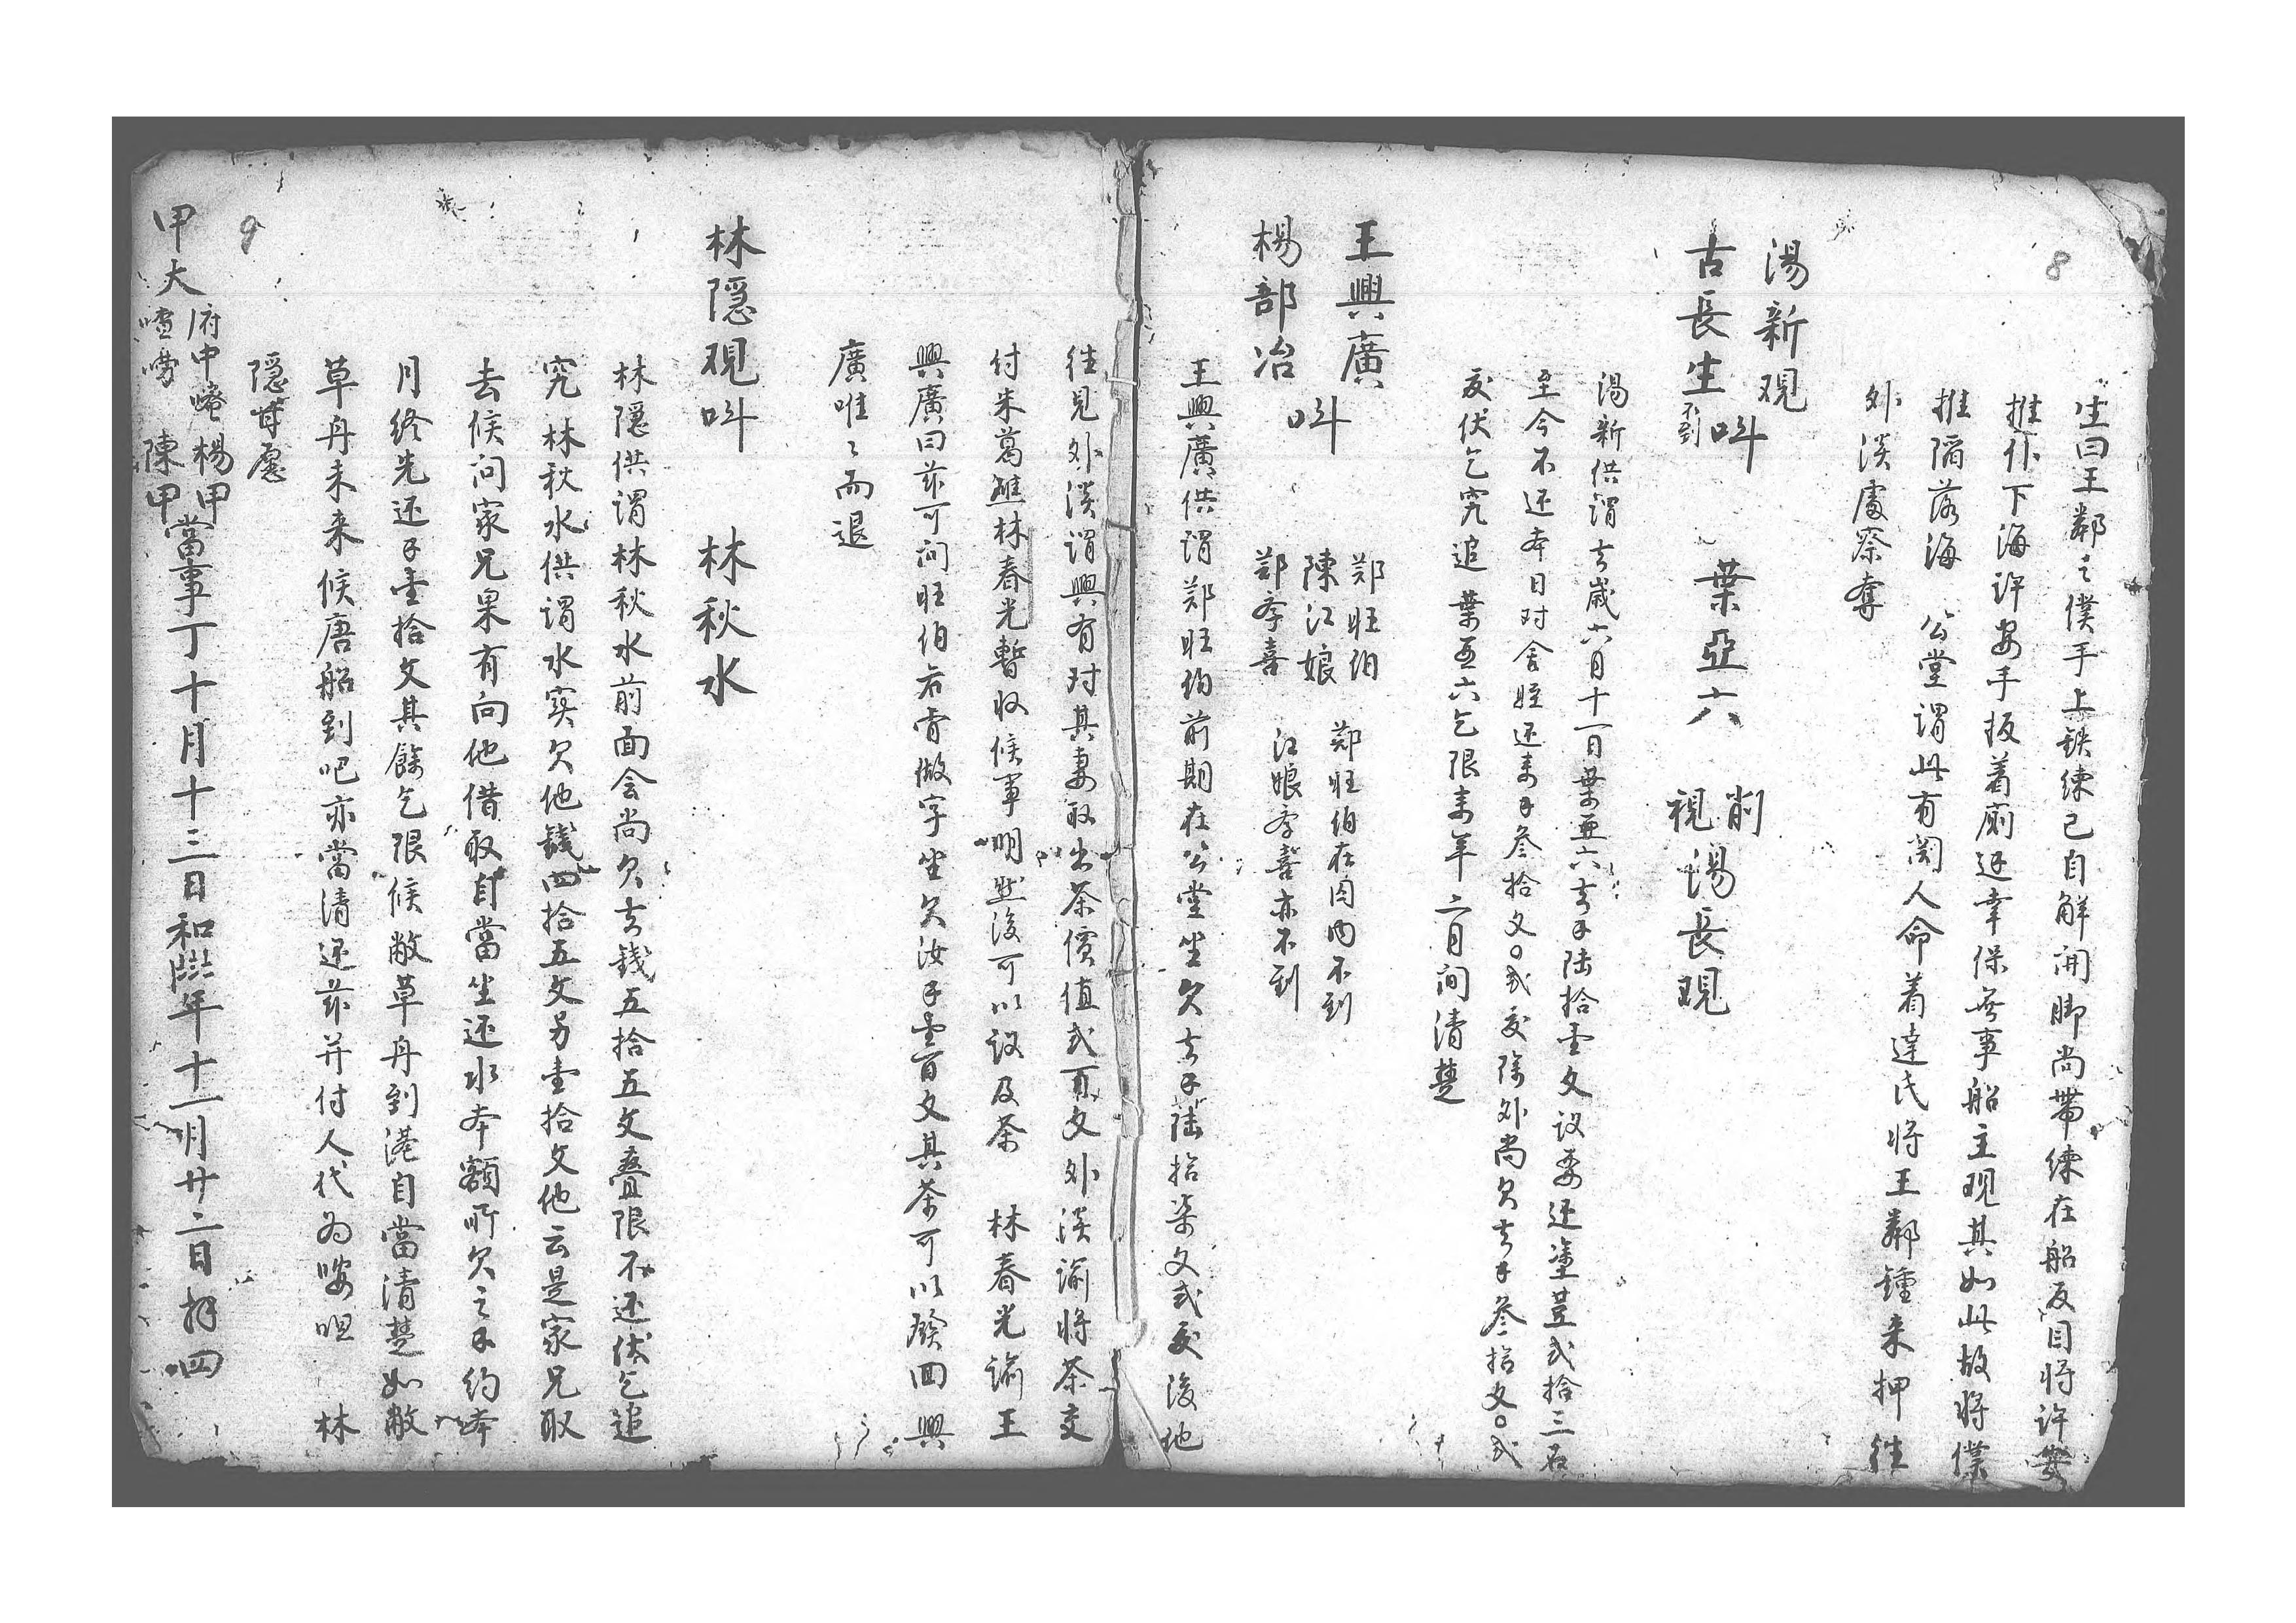 8
生曰王鄰之僕手上鉄練已自解開脚尚帶練在船反目将许安
推仆下海许安手扳着廟还幸保無事船主現其如此故將僕
推陷落海　公堂謂此有関人命着達氏将王鄰鍾来押往
外淡處察奪
湯新現
古長生不到　呌　葉亞六　削視湯長現
湯新供謂去歲六月十一日葉亜六去子陆拾壹文议要还塗荳弍拾三石
至今不还本日对舍姪还耒子叁拾文〇弍交除外尚欠去子叁拾文〇弍
交伏乞究追　葉亜六乞限耒年二月间清楚
王興廣
楊部冶　呌　郑旺伯　陳江娘　郑孝喜　郑旺伯在内不到　江娘孝喜亦不到
王興廣供謂郑旺伯前期在公堂坐欠去子陆拾柒文弍交後他
往見外淡謂興有对其妻取出茶價值弍百文外淡諭将茶交
付朱葛礁林春光暫收候事明然後可以议及茶　林春光諭王
興廣曰兹可问旺伯若肯做字坐欠汝子壹百文其茶可以發回興
廣唯々而退
林隠現呌　林秋水
林隠供謂林秋水前面会尚欠去錢五拾五文叠限不还伏乞追
究　林秋水供謂水实欠他錢四拾五文另壹拾文他云是家兄取
去候问家兄果有向他借取自當坐还水本额所欠之子约本
月终先还子壹拾文其餘乞限候敝草舟到港自當清楚如敝
草舟未来　候唐船到吧亦當清还兹并付人代为㖠呾　林
隠甘愿
9
甲大　府中㘉楊甲　㗮嘮陳甲　當事丁十月十三日和一千七百八十七年十一月廿二日拜四